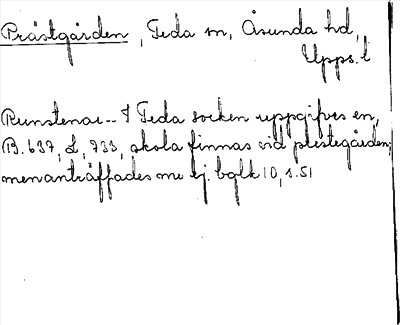 Prästgården, Teda sn, Åsunda hd,
Upps. l
Runstenar -- I Teda socken uppgifves en,
B. 637, L, 733, skola finnas vid prestegården,
men anträffades nu ej. bglk 10, s. 51